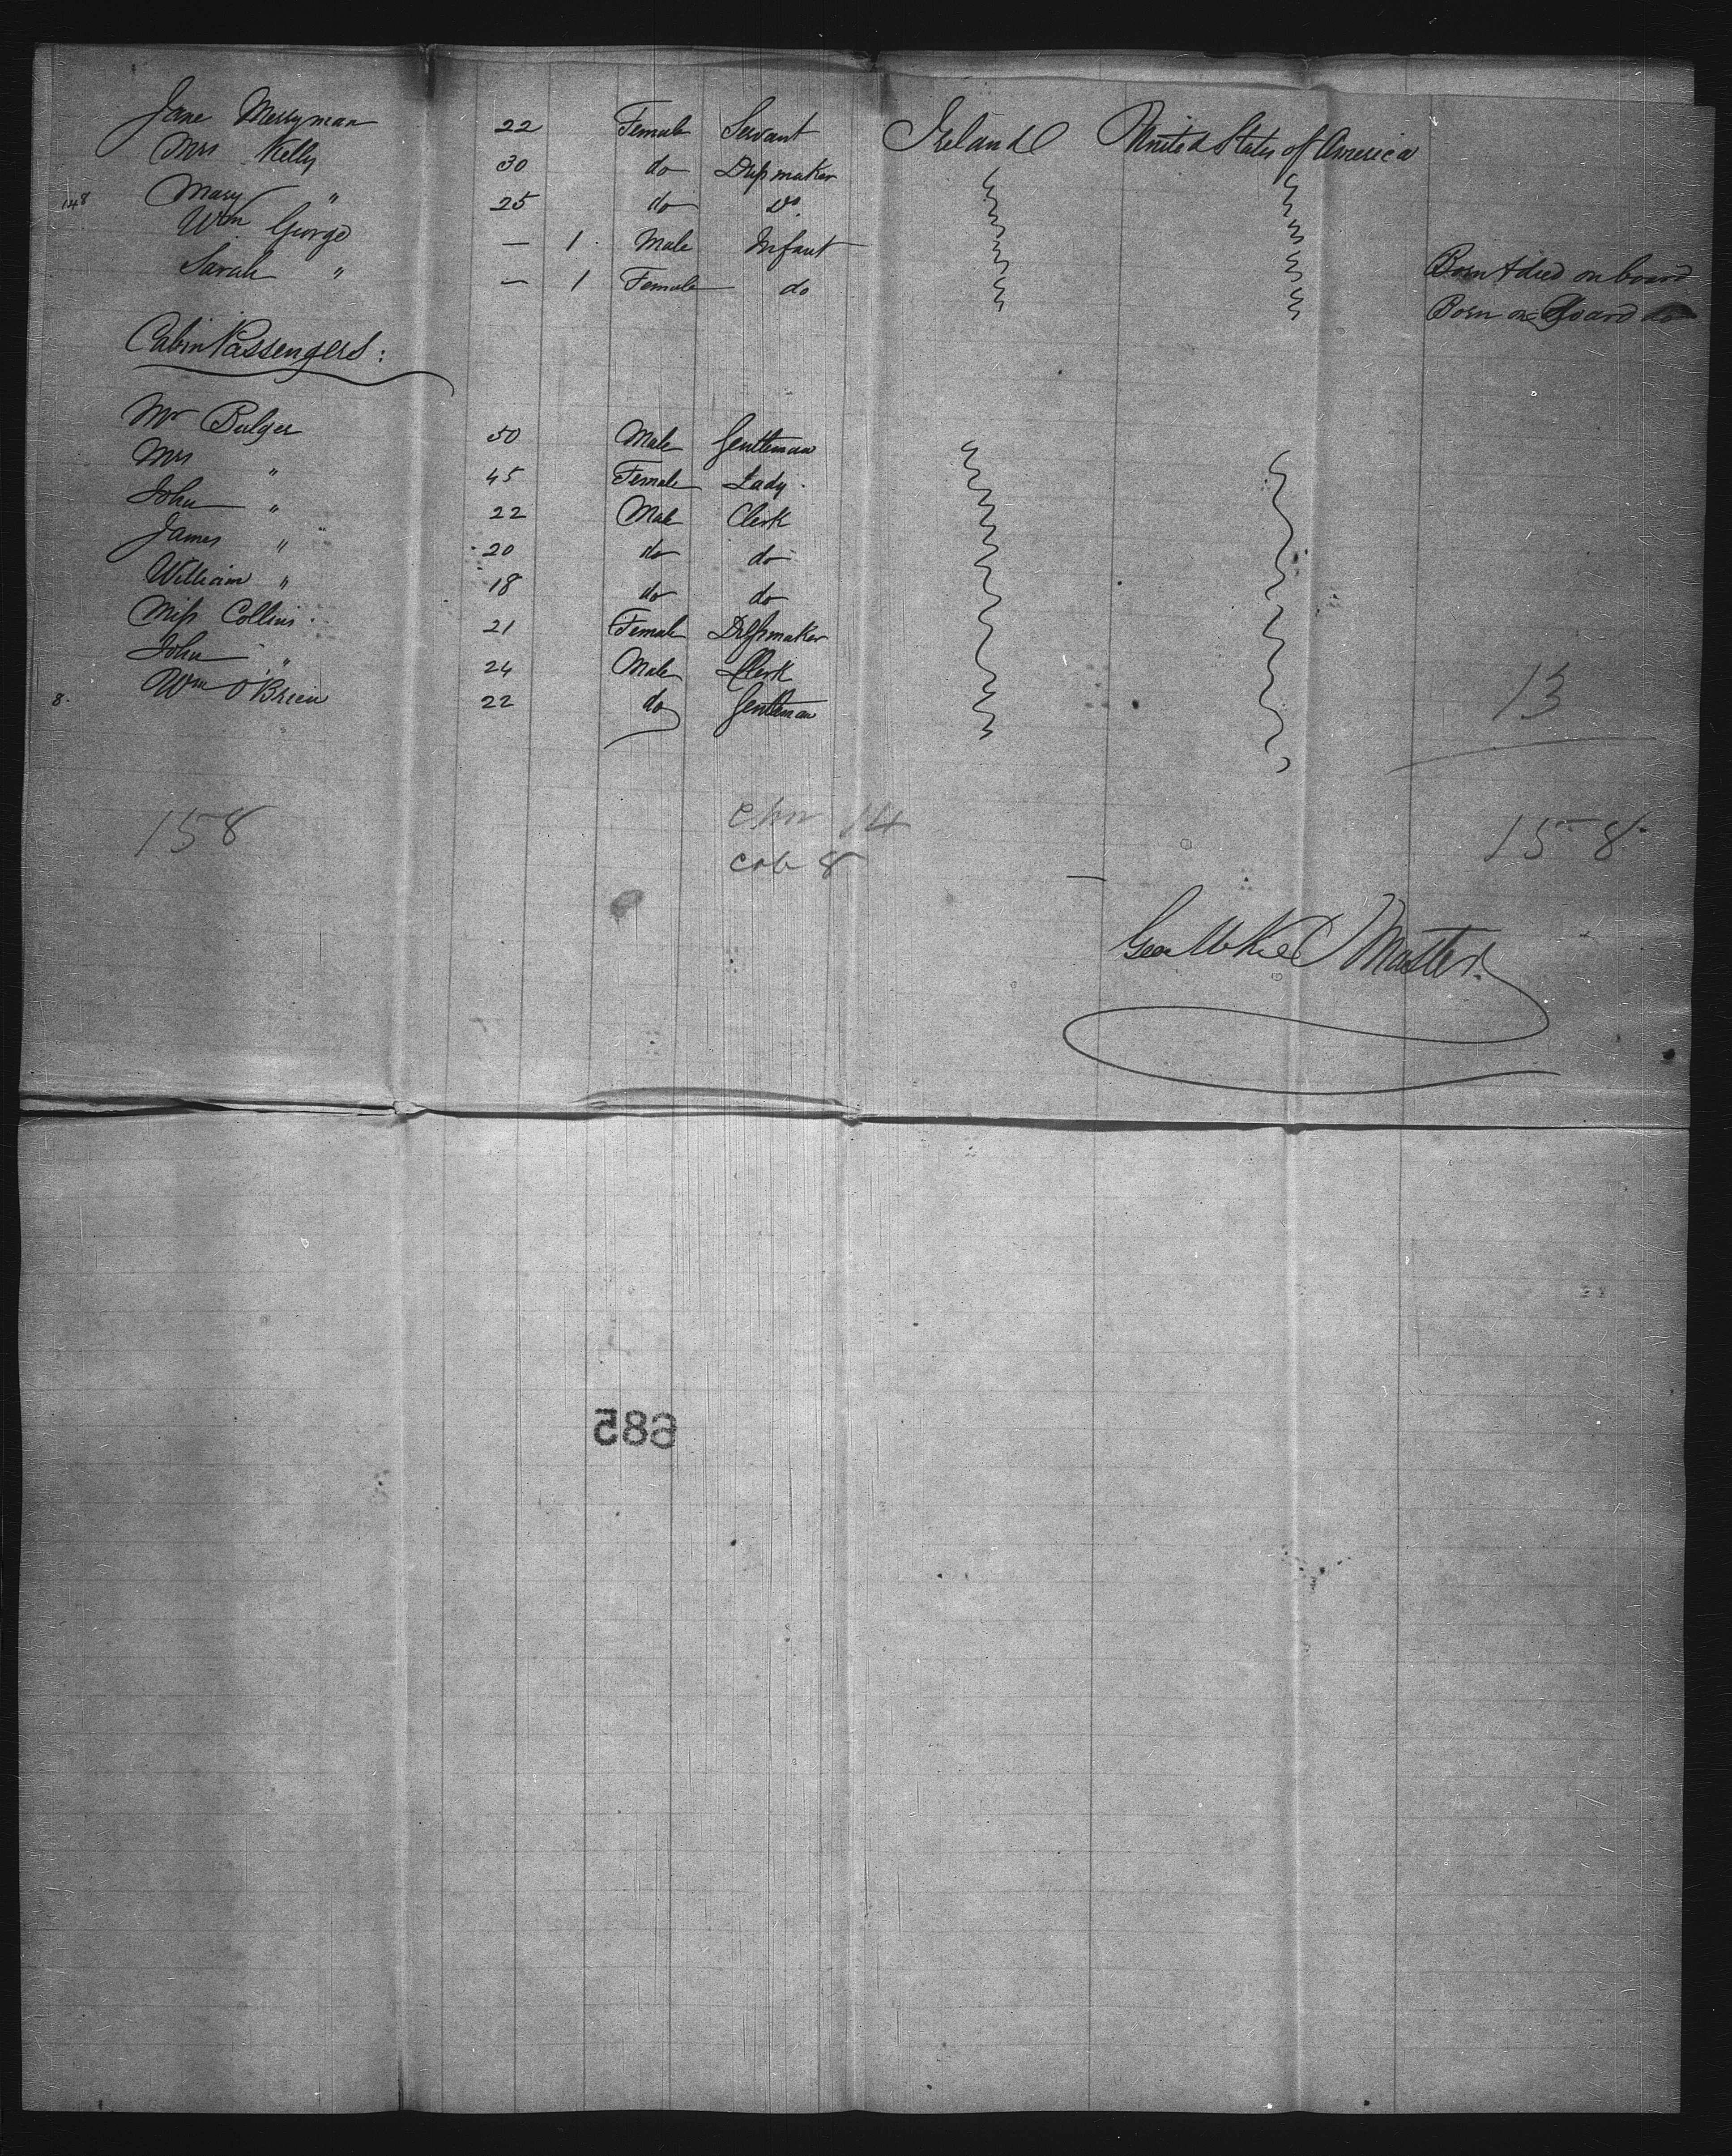 Jane Merryman 22 Female Servant Ireland United States of America
Mrs Kelly 30 do Dressmaker
148 Mary " 25 do do
Wm George — 1 Male Infant Born & died on board
Sarah " — 1 Female do Born on Board do
Cabin Passengers:
Mr Bulger 50 Male Gentleman
Mrs " 45 Female Lady
John " 22 Male Clerk
James " 20 do do
William " 18 do do
Miss Collins 21 Female Dressmaker
John " 24 Male Clerk
8. Wm O'Brien 22 do Gentleman
13
158 14 158
cab 8
Master.
685